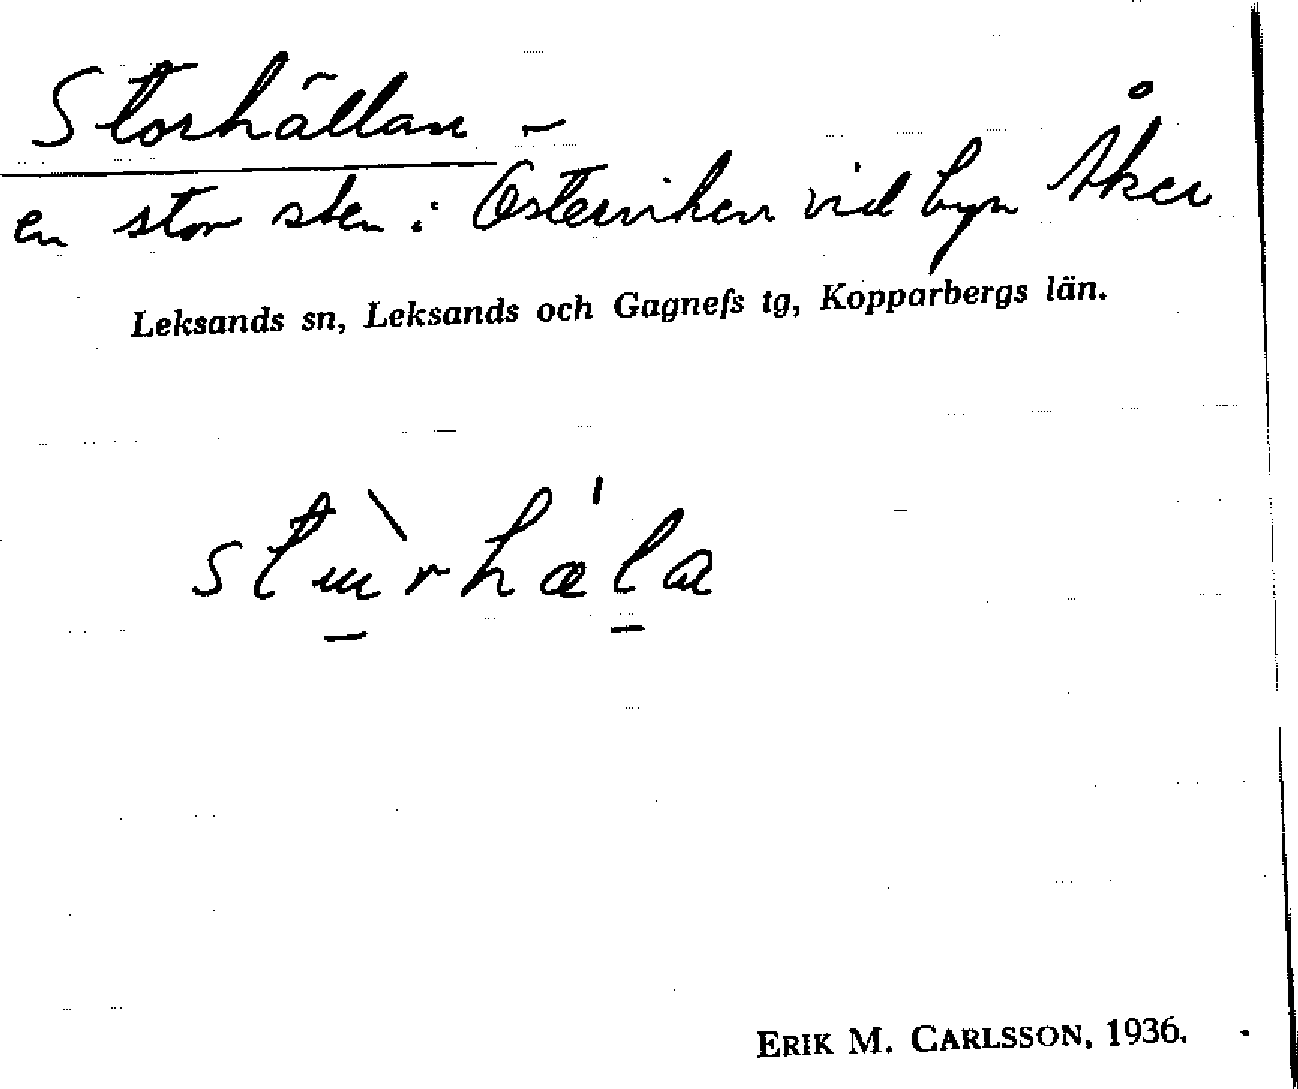 Storhällan –
en stor sten i Österviken vid byn Åker
Leksands sn, Leksands och Gagnefs tg, Kopparbergs län.
stɯ̠̀rhæ'l̠a
ERIK M. CARLSSON, 1936.